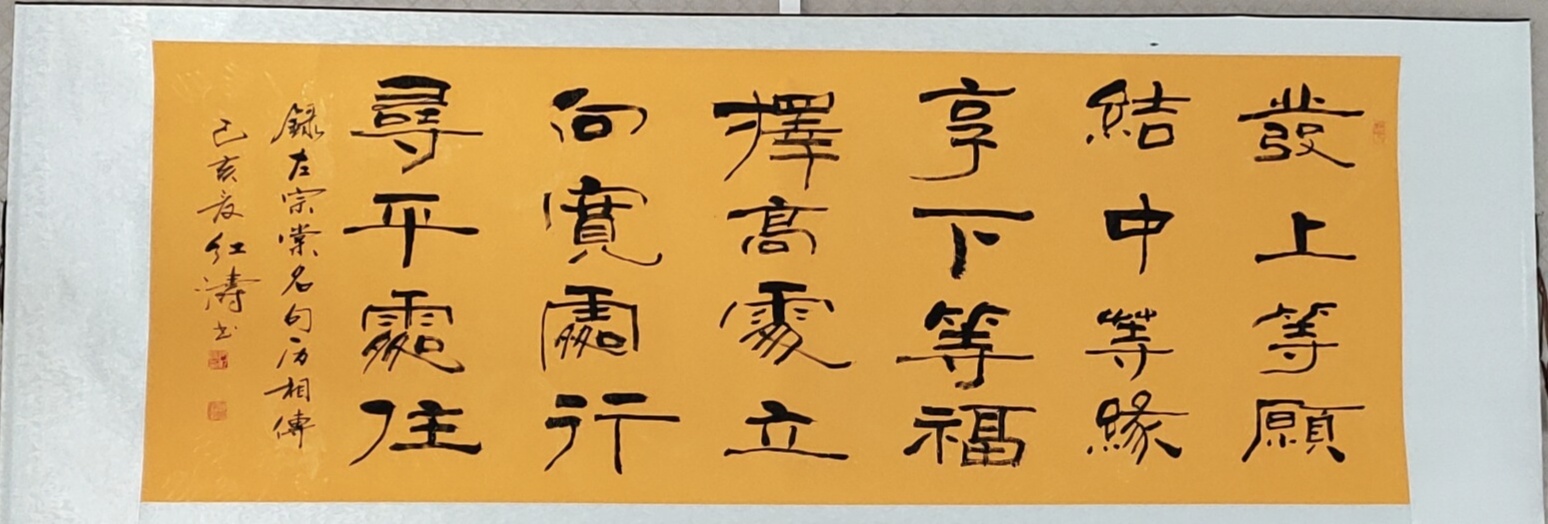 發上等願
結中等緣
享下等福
擇高處立
向寬處行
尋平處住
錄左宗棠名句以相傳
己亥夏紅濤书